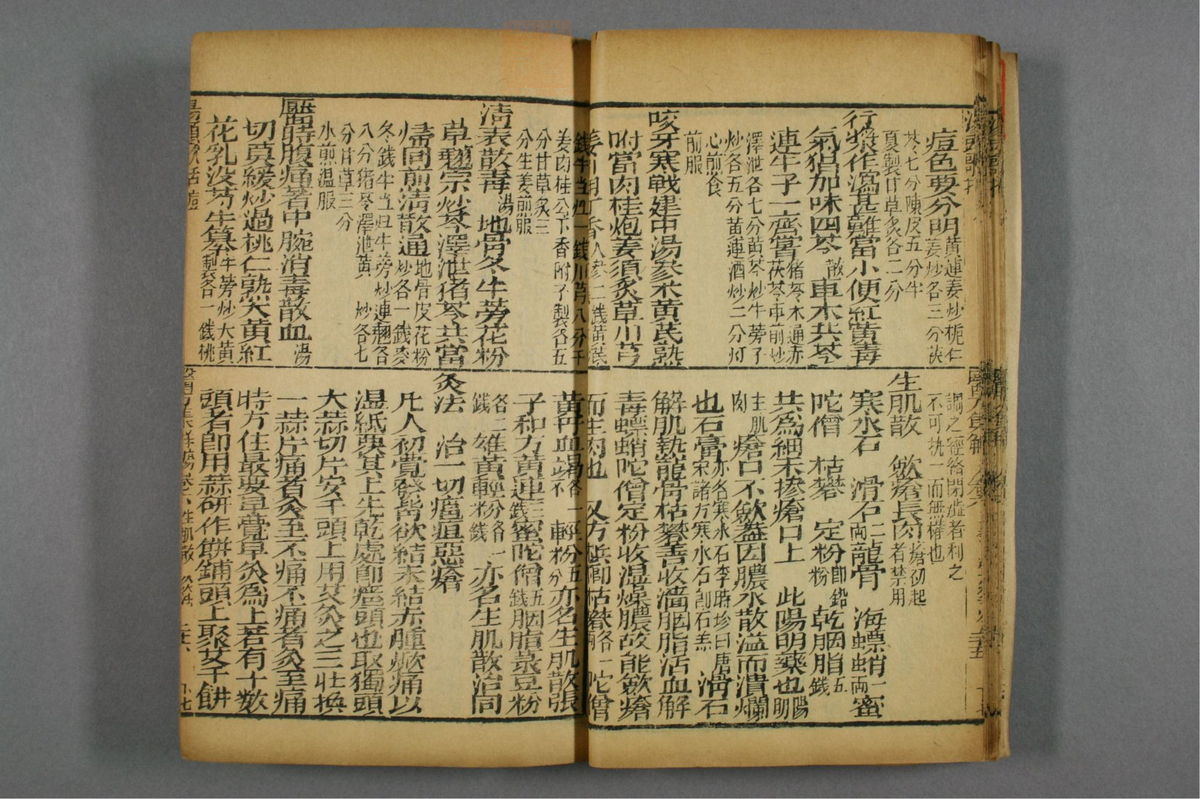 痘色要分明黃連姜炒梔仁姜炒各三分茯
苓七分陳皮五分牛
夏製甘草炙各二分
行漿作瀉甚難當小便紅黃毒
氣猖加味四苓散車木共芩
連牛子一齊嘗猪苓木通赤茯苓車前炒
澤泄各七分黃芩炒牛蒡子
炒各五分黃連酒炒二分灯
心前食
前服
咬牙寒戰建中湯參朮黃芪熟
附當肉桂炮姜須炙草川芎
姜丁香人參二錢黃芪
錢牛当归一錢川芎八分干
姜肉桂八分香附子製各五
分甘草炙三
分生姜前服
清表散毒湯地骨冬牛蒡花粉
草翹宗炒芩澤泄猪苓共當
歸同煎清散通地骨皮花粉炒各一錢麥
冬錢牛当归牛蒡炒連翹各
八分猪苓澤泄黃芩炒各七
分甘草三分
水煎温服
靨時腹痛著中腕消毒散血湯
切莫緩炒過桃仁熟大黃紅
花乳沒芍牛蒡牛蒡炒大黃製各一錢桃
調之經絡閉澁者利之
不可執一而無權也
生肌散 斂瘡長肉瘡初起者禁用
寒水石 滑石二兩龍骨 海螵蛸一兩蜜
陀僧 枯礬 定粉即鉛粉 乾胭脂五錢
共為細末摻瘡口上 此陽明藥也陽明
主肌肉瘡口不斂蓋因膿水散溢而潰爛
也石膏亦名寒水石李時珍曰唐宋諸方寒水石即石羔滑石
解肌熱龍骨枯礬善收濇胭脂活血解
毒螵蛸陀僧定粉收濕燥膿故能斂瘡
而生肉也 又方枯礬各一兩陀僧
黃丹血竭各一錢輕粉五分亦名生肌散張
子和方黃連三錢蜜陀僧五錢胭脂菉豆粉
各二錢雄黃輕粉各一錢亦名生肌散治同
灸法 治一切瘡疽惡瘡
凡人初覺發背欲結未結赤腫焮痛以
濕紙覆其上先乾處即瘡頭也取獨頭
大蒜切片安于頭上用艾灸之三壯換
一蒜片痛者灸至不痛不痛者灸至痛
時方住最要早覺早灸為上若有十數
頭者即用蒜研作餅鋪頭上聚艾于餅